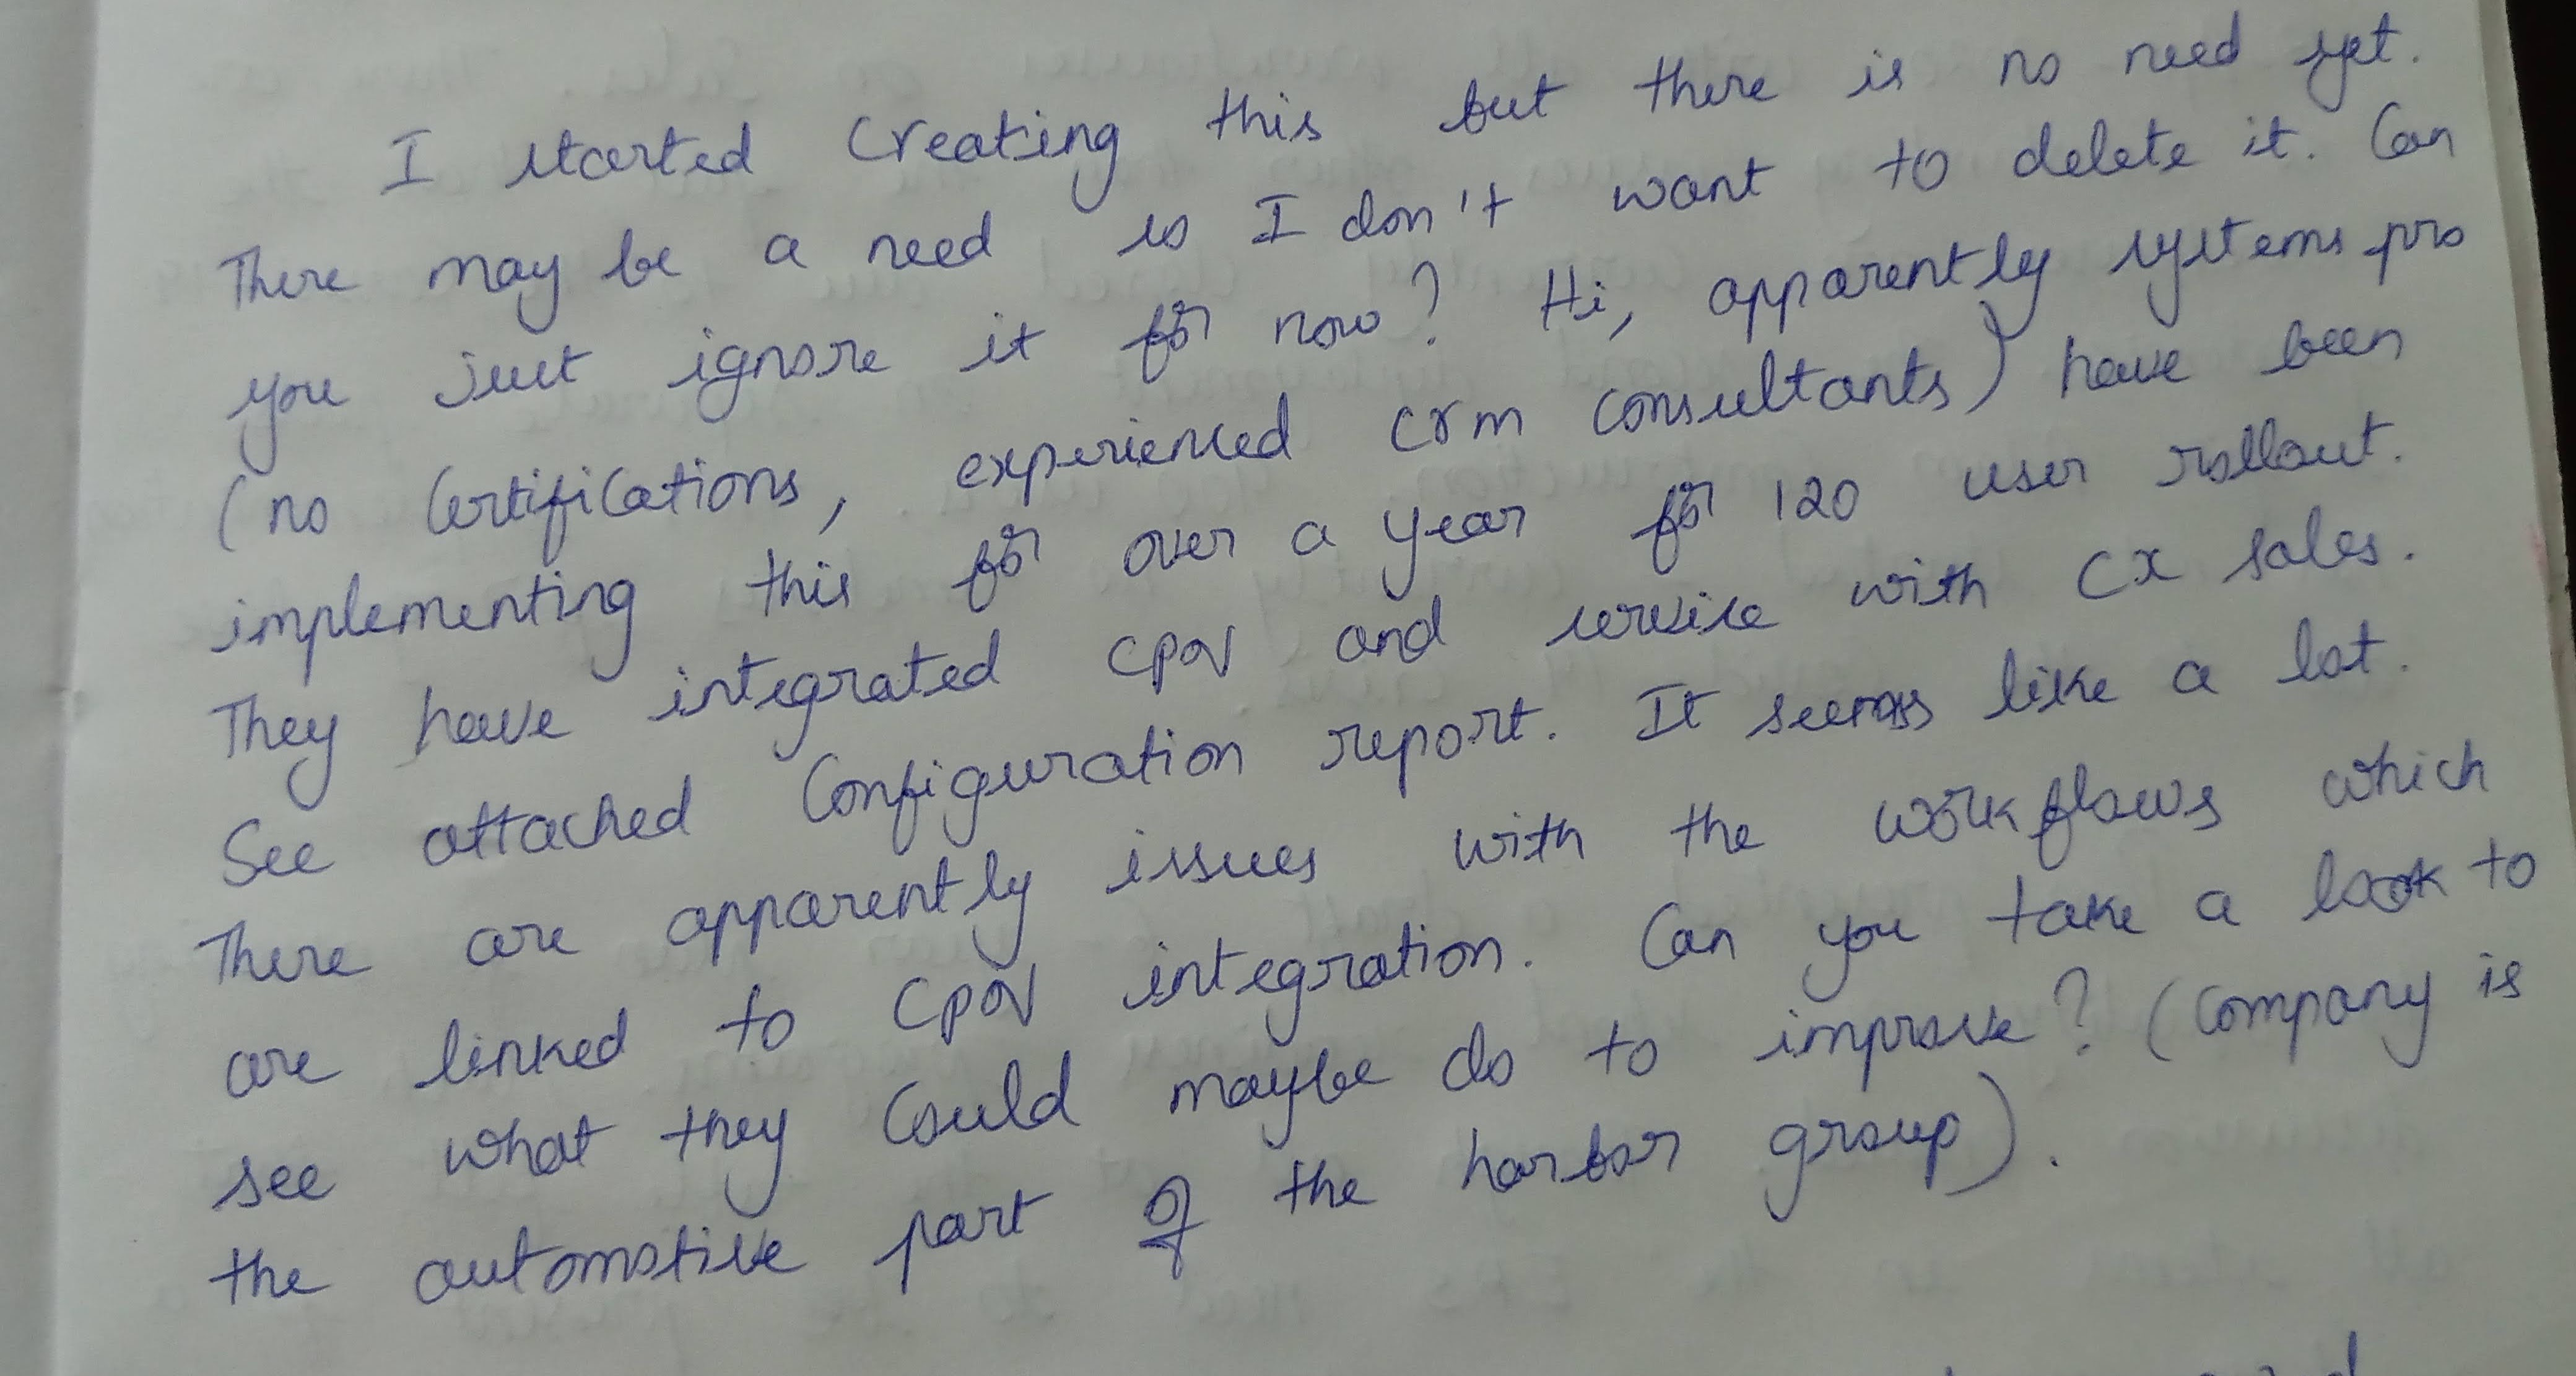 I started creating this but there is no need yet.
There may be a need so I don't want to delete it. Can
you just ignore it for now? Hi, apparently systems pro
(no certifications, experienced crm consultants) have been
implementing this for over a year for 120 user rollout.
They have integrated CPQ and service with CX sales.
See attached configuration report. It seems like a lot.
There are apparently issues with the workflows which
are linked to CPQ integration. Can you take a look to
see what they could maybe do to improve? (Company is
the automotive part of the harbor group).